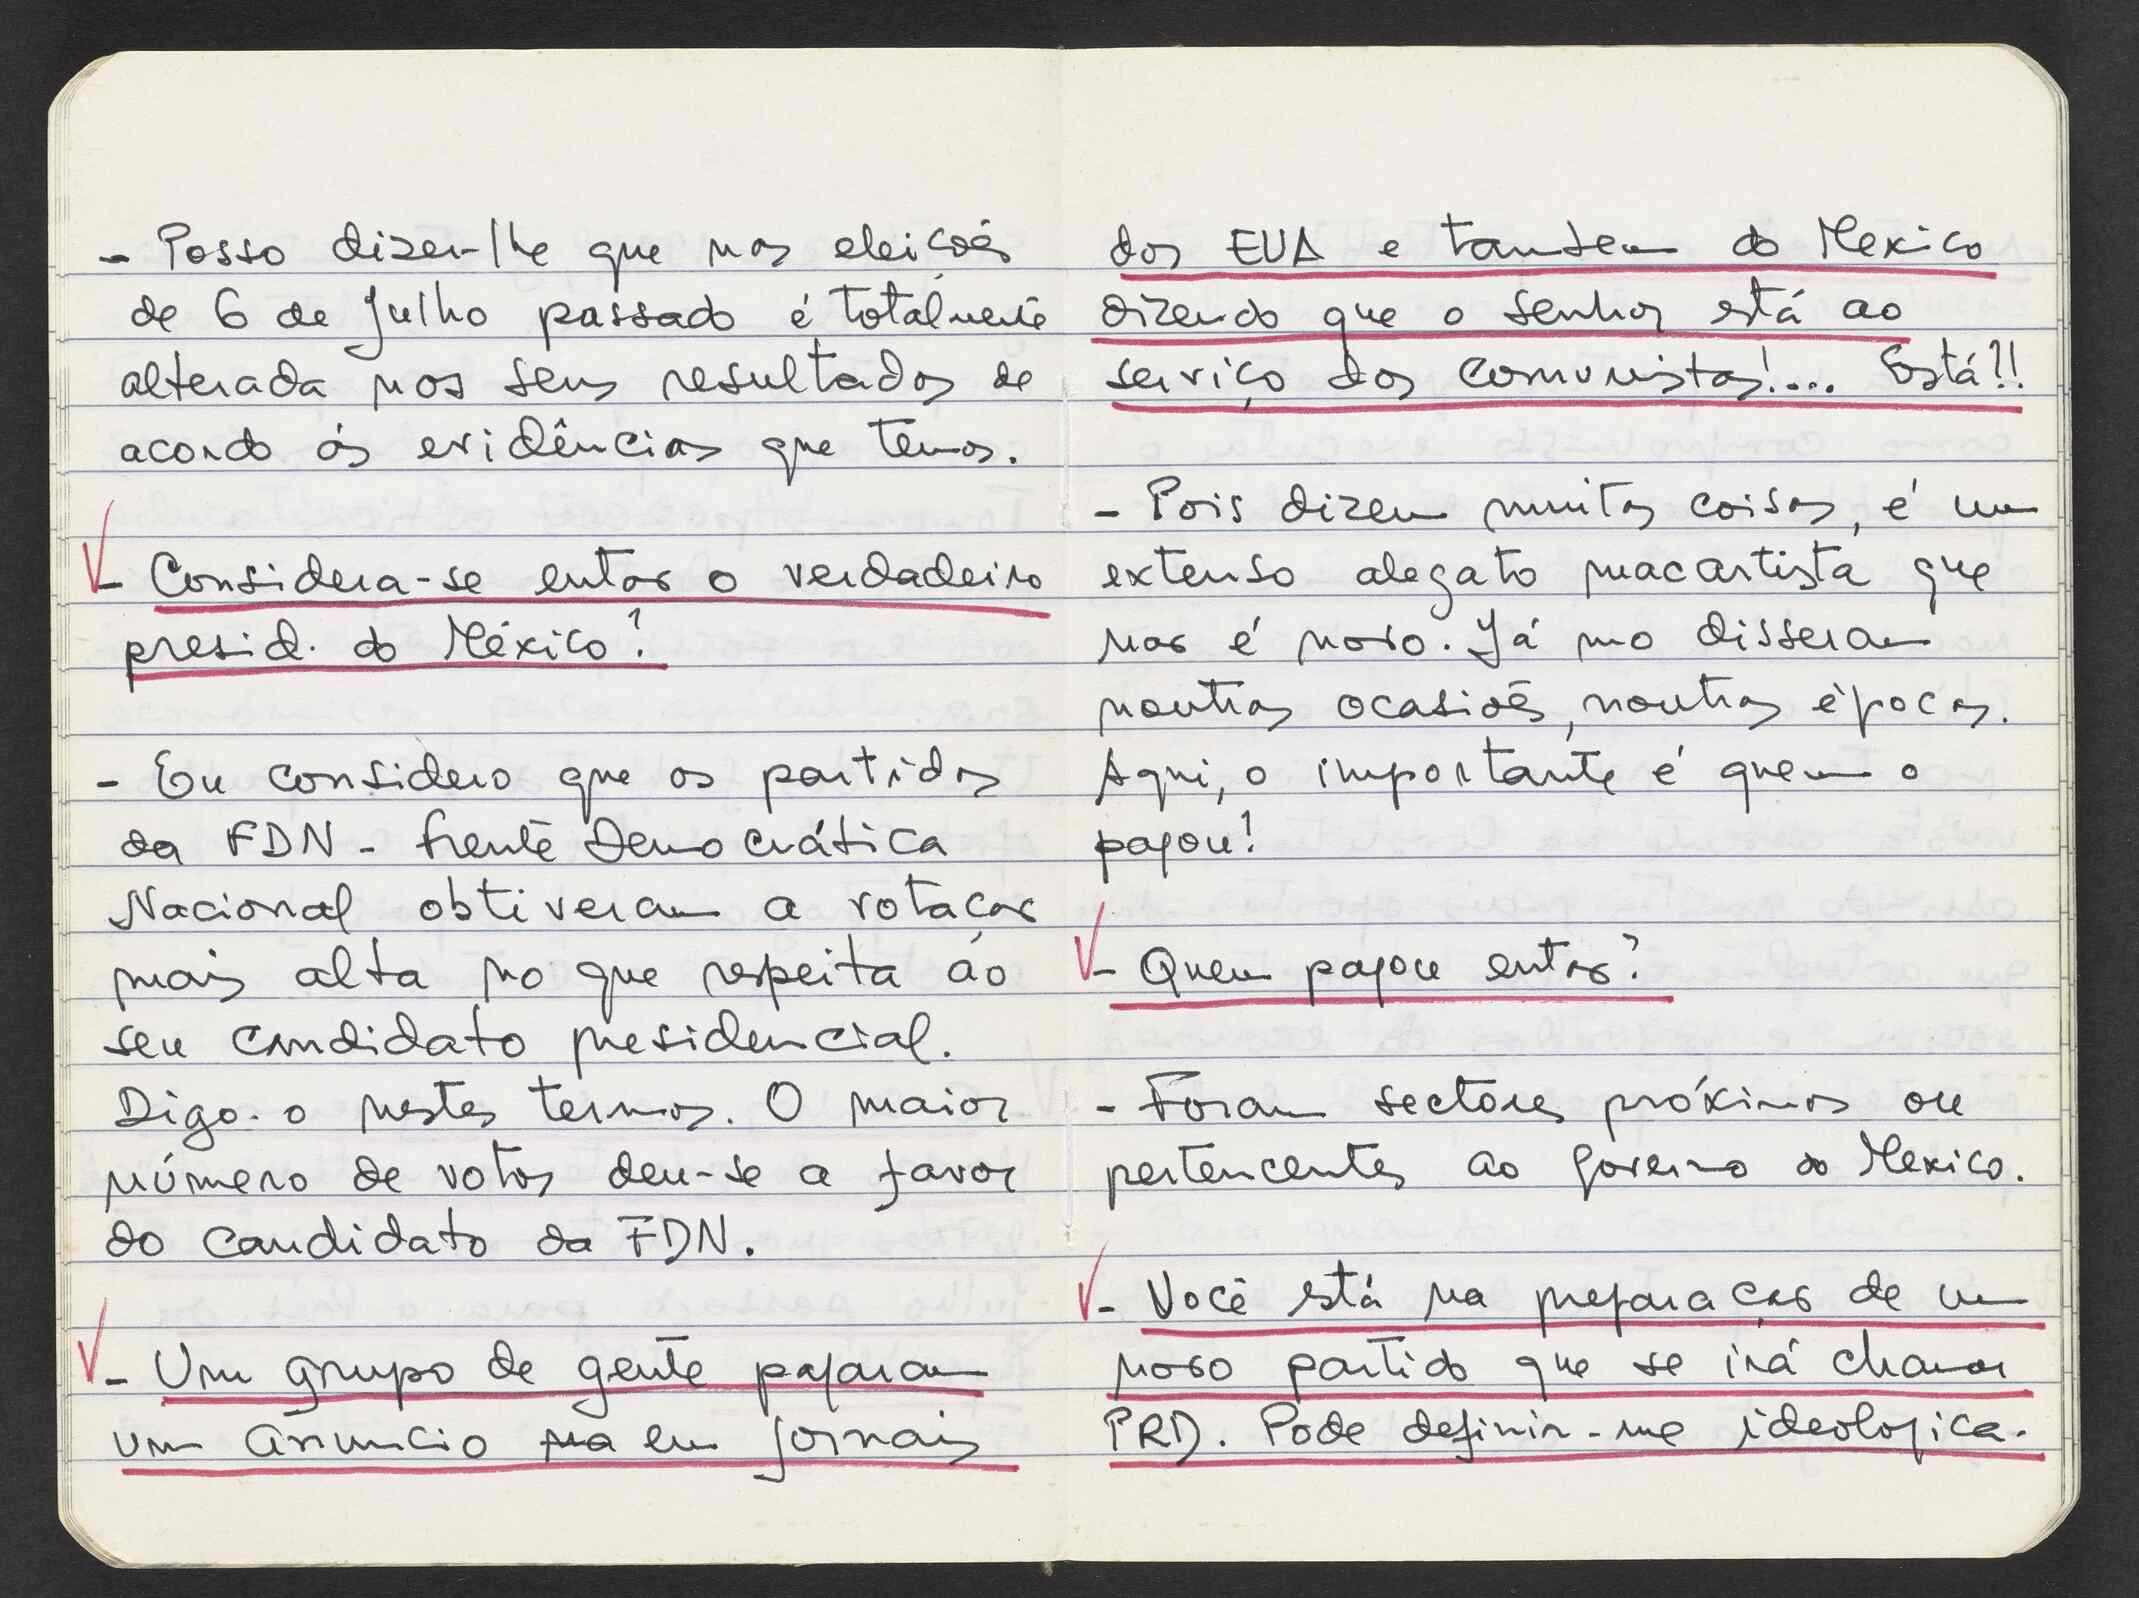 - Posso dizer-lhe que nas eleições
de 6 de Julho passado é totalmente
alterada nos seus resultados de
acordo às evidências que temos.
- Considera-se então o verdadeiro
presid. do México?
- Eu considero que os partidos
da FDN - frente Democrática
Nacional obtiveram a votação
mais alta no que respeita ao
seu candidato presidencial.
Digo-o nestes termos. O maior
número de votos deu-se a favor
do candidato da FDN.
- Um grupo de gente pagaram
um anuncio na em jornais
dos EUA e tambem do Mexico
dizendo que o senhor está ao
serviço dos comunistas!... Está?!
- Pois dizem muitas coisas, é um
extenso alegato macartista que
não é novo. Já mo disseram
noutras ocasiões, noutras épocas.
Aqui, o importante é quem o
pagou!
- Quem pagou então?
- Foram sectores próximos ou
pertencentes ao governo do Mexico.
- Você está na preparação de um
novo partido que se irá chamar
PRD. Pode definir-me ideologica-